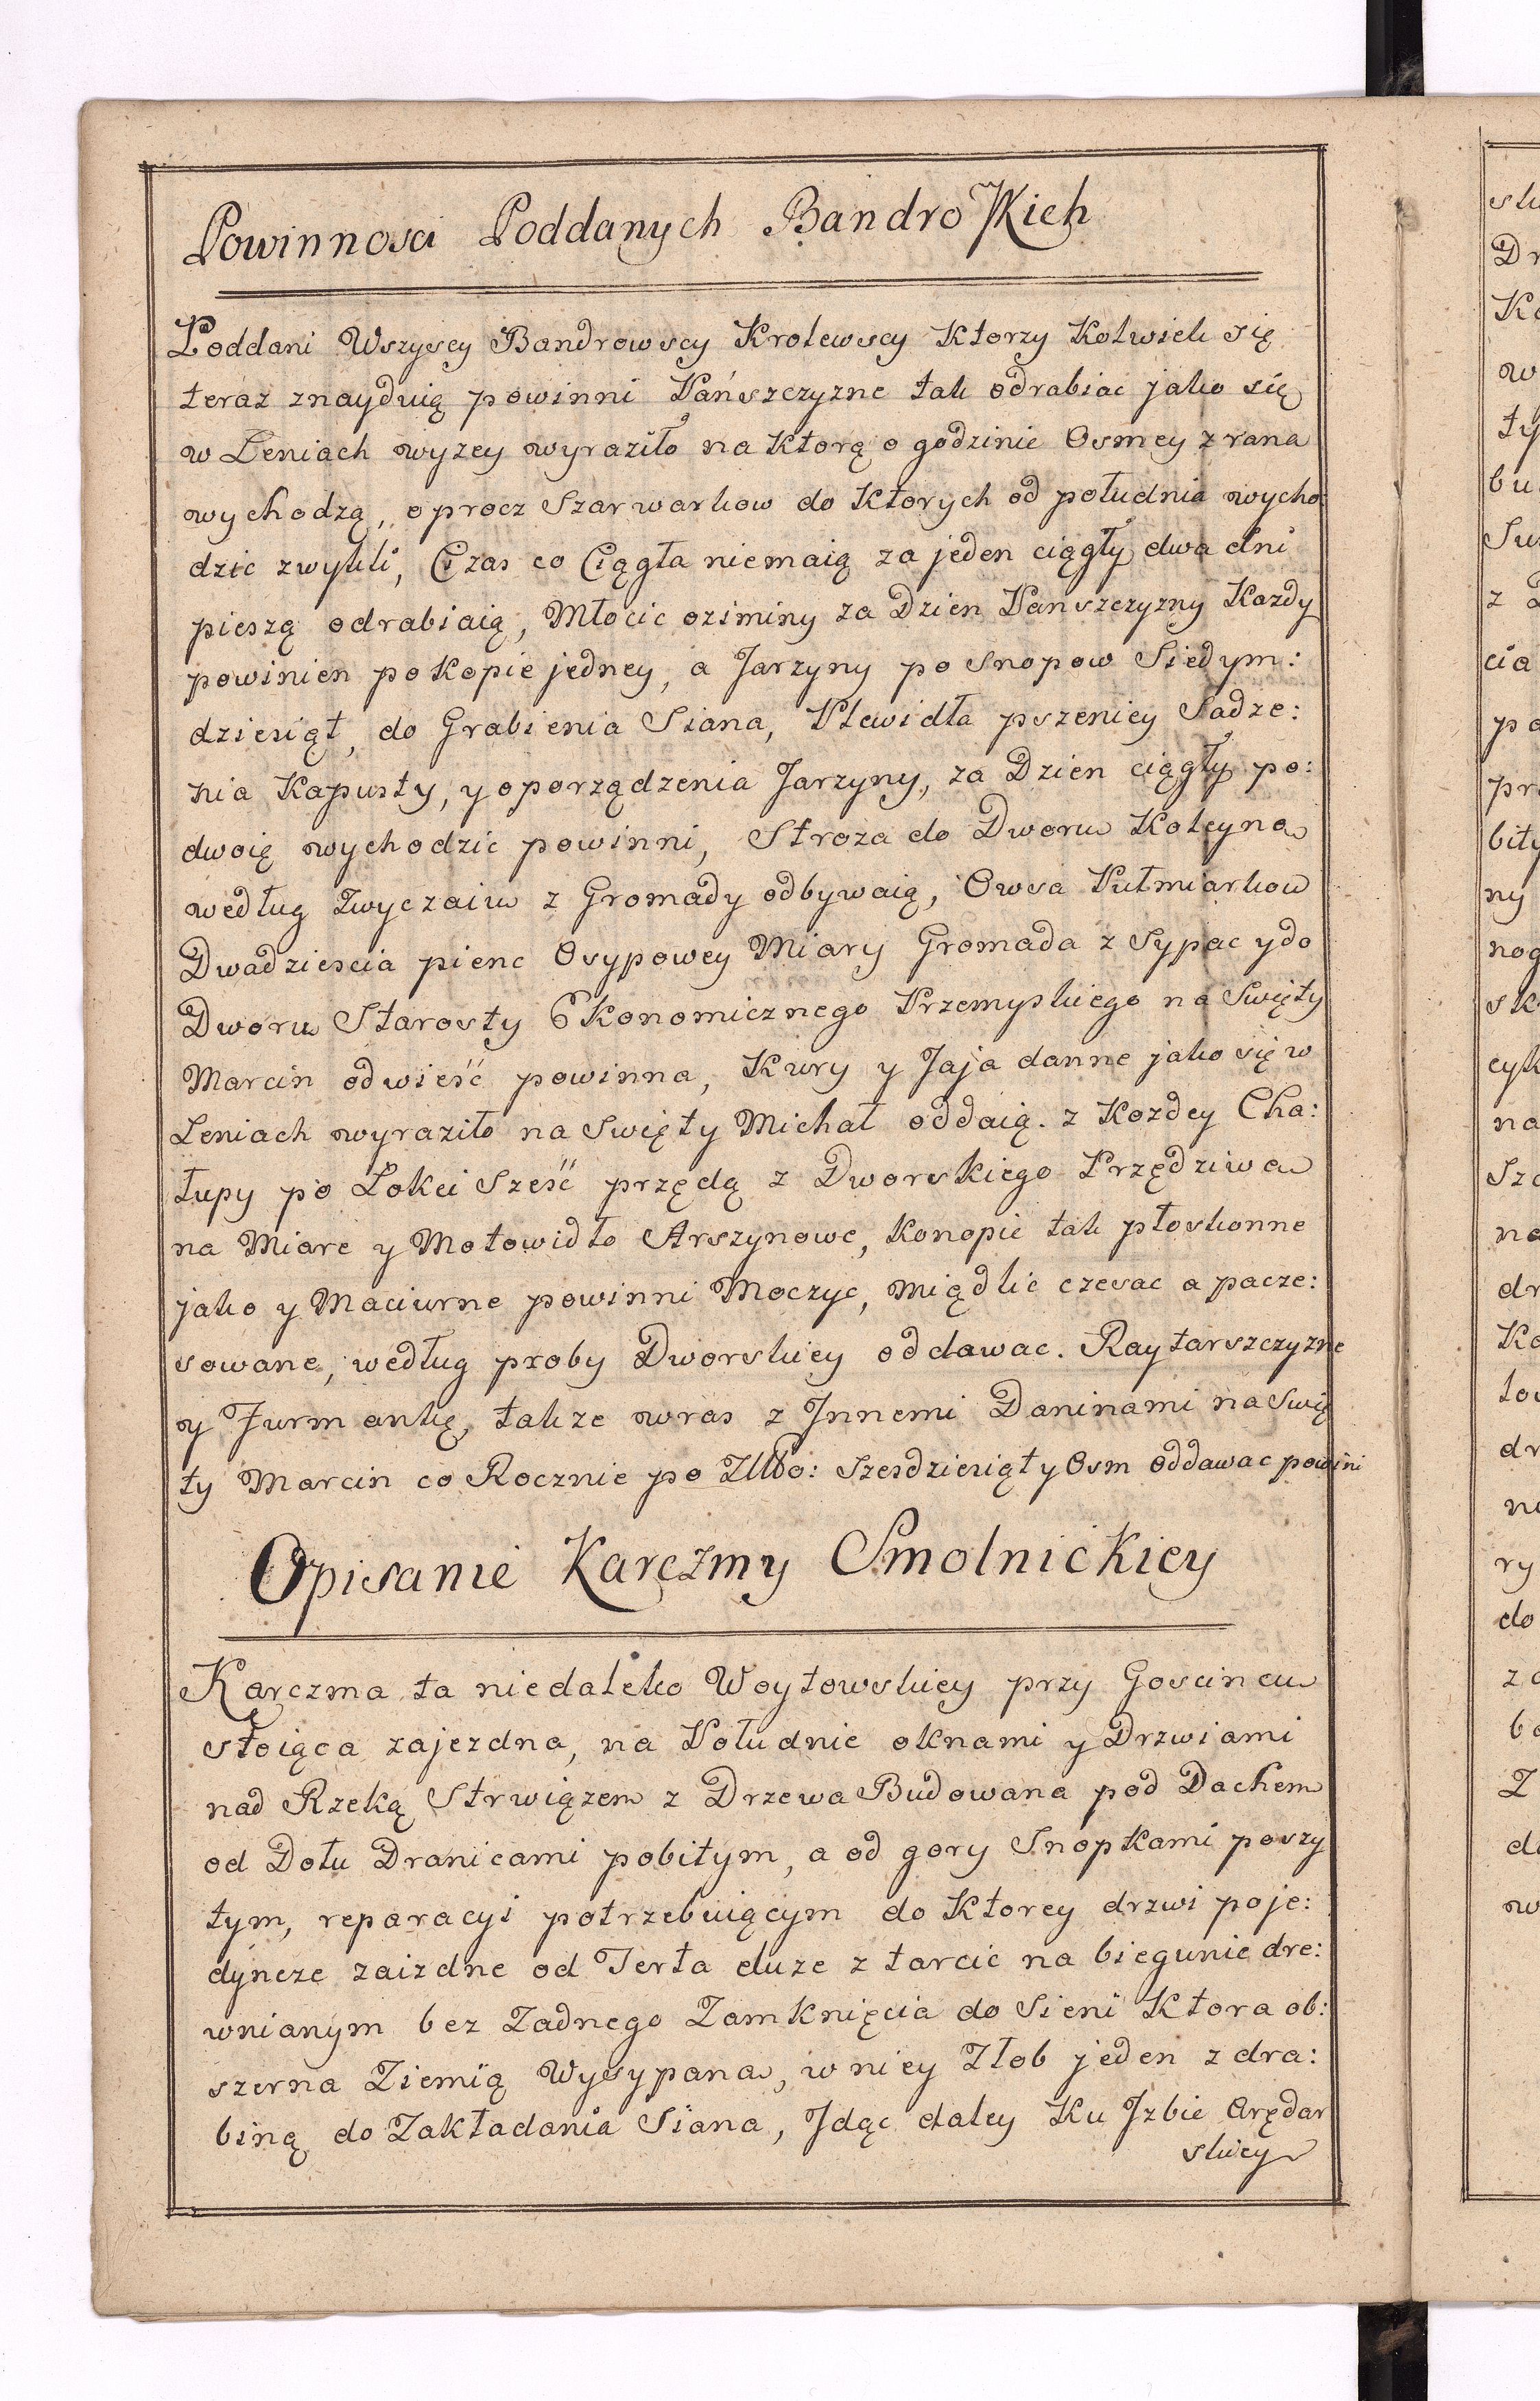 Powinnosci Poddanych Bandrowskich
Poddani Wszyscy Bandrowscy Krolewscy Ktorzy Kolwiek się
teraz znayduią powinni Pańszczyzne tak odrabiac jako się
w Leniach wyzey wyraziło na Ktorą o godzinie Osmey z rana
wychodzą, oprocz Szarwarkow do Ktorych od południa wycho
dzic zwykli, Czas co Ciągła niemaią za jeden ciągły dwa dni
pieszą odrabiaią, Młocic oziminy za Dzien Panszczyzny Kazdy
powinien po Kopie jedney, a Jarzyny po Snopow Siedym:
dziesiąt, do Grabienia Siana, Plewidła pszenicy Sadze:
nia Kapusty, y oporządzenia Jarzyny, za Dzien ciągły po:
dwoię wychodzic powinni, Stroza do Dworu Koleyna
według Zwyczaiu z Gromady odbywaią, Owsa Pułmiarkow
Dwadziescia pienc Osypowey Miary Gromada z Sypac y do
Dworu Starosty Ekonomicznego Przemyskiego na Swięty
Marcin odwieść powinna, Kury y Jaja danne jako się w
Leniach wyraziło na Swięty Michał oddaią. z Kozdey Cha:
łupy po Łokci Sześć przędą z Dworskiego Przędziwa
na Miare y Motowidło Arszynowe, Konopie tak płoskonne
jako y Maciurne powinni Moczyc, miądlic czesac a pacze:
sowane, według proby Dworskiey oddawac. Raytarszczyzne
y Furmankę, takze wras z Jnnemi Daninami na Swię
ty Marcin co Rocznie po Złło: Szesdziesiąt y Osm oddawac powini
Opisanie Karczmy Smolnickiey
Karczma ta niedaleko Woytowskiey przy Goscincu
stoiąca zajezdna, na Południe oknami y Drzwiami
nad Rzeką Strwiązem z Drzewa Budowana pod Dachem
od Dołu Dranicami pobitym, a od gory Snopkami poszy
tym, reparacyi potrzebuiącym do Ktorey drzwi poje:
dyncze zaizdne od Terła duze z tarcic na biegunie dre:
wnianym bez Zadnego Zamknięcia do Sieni Ktora ob:
szerna Ziemią Wysypana, w niey Złob jeden z dra:
biną do Zakładania Siana, Jdąc daley Ku Jzbie Arędar
skiey